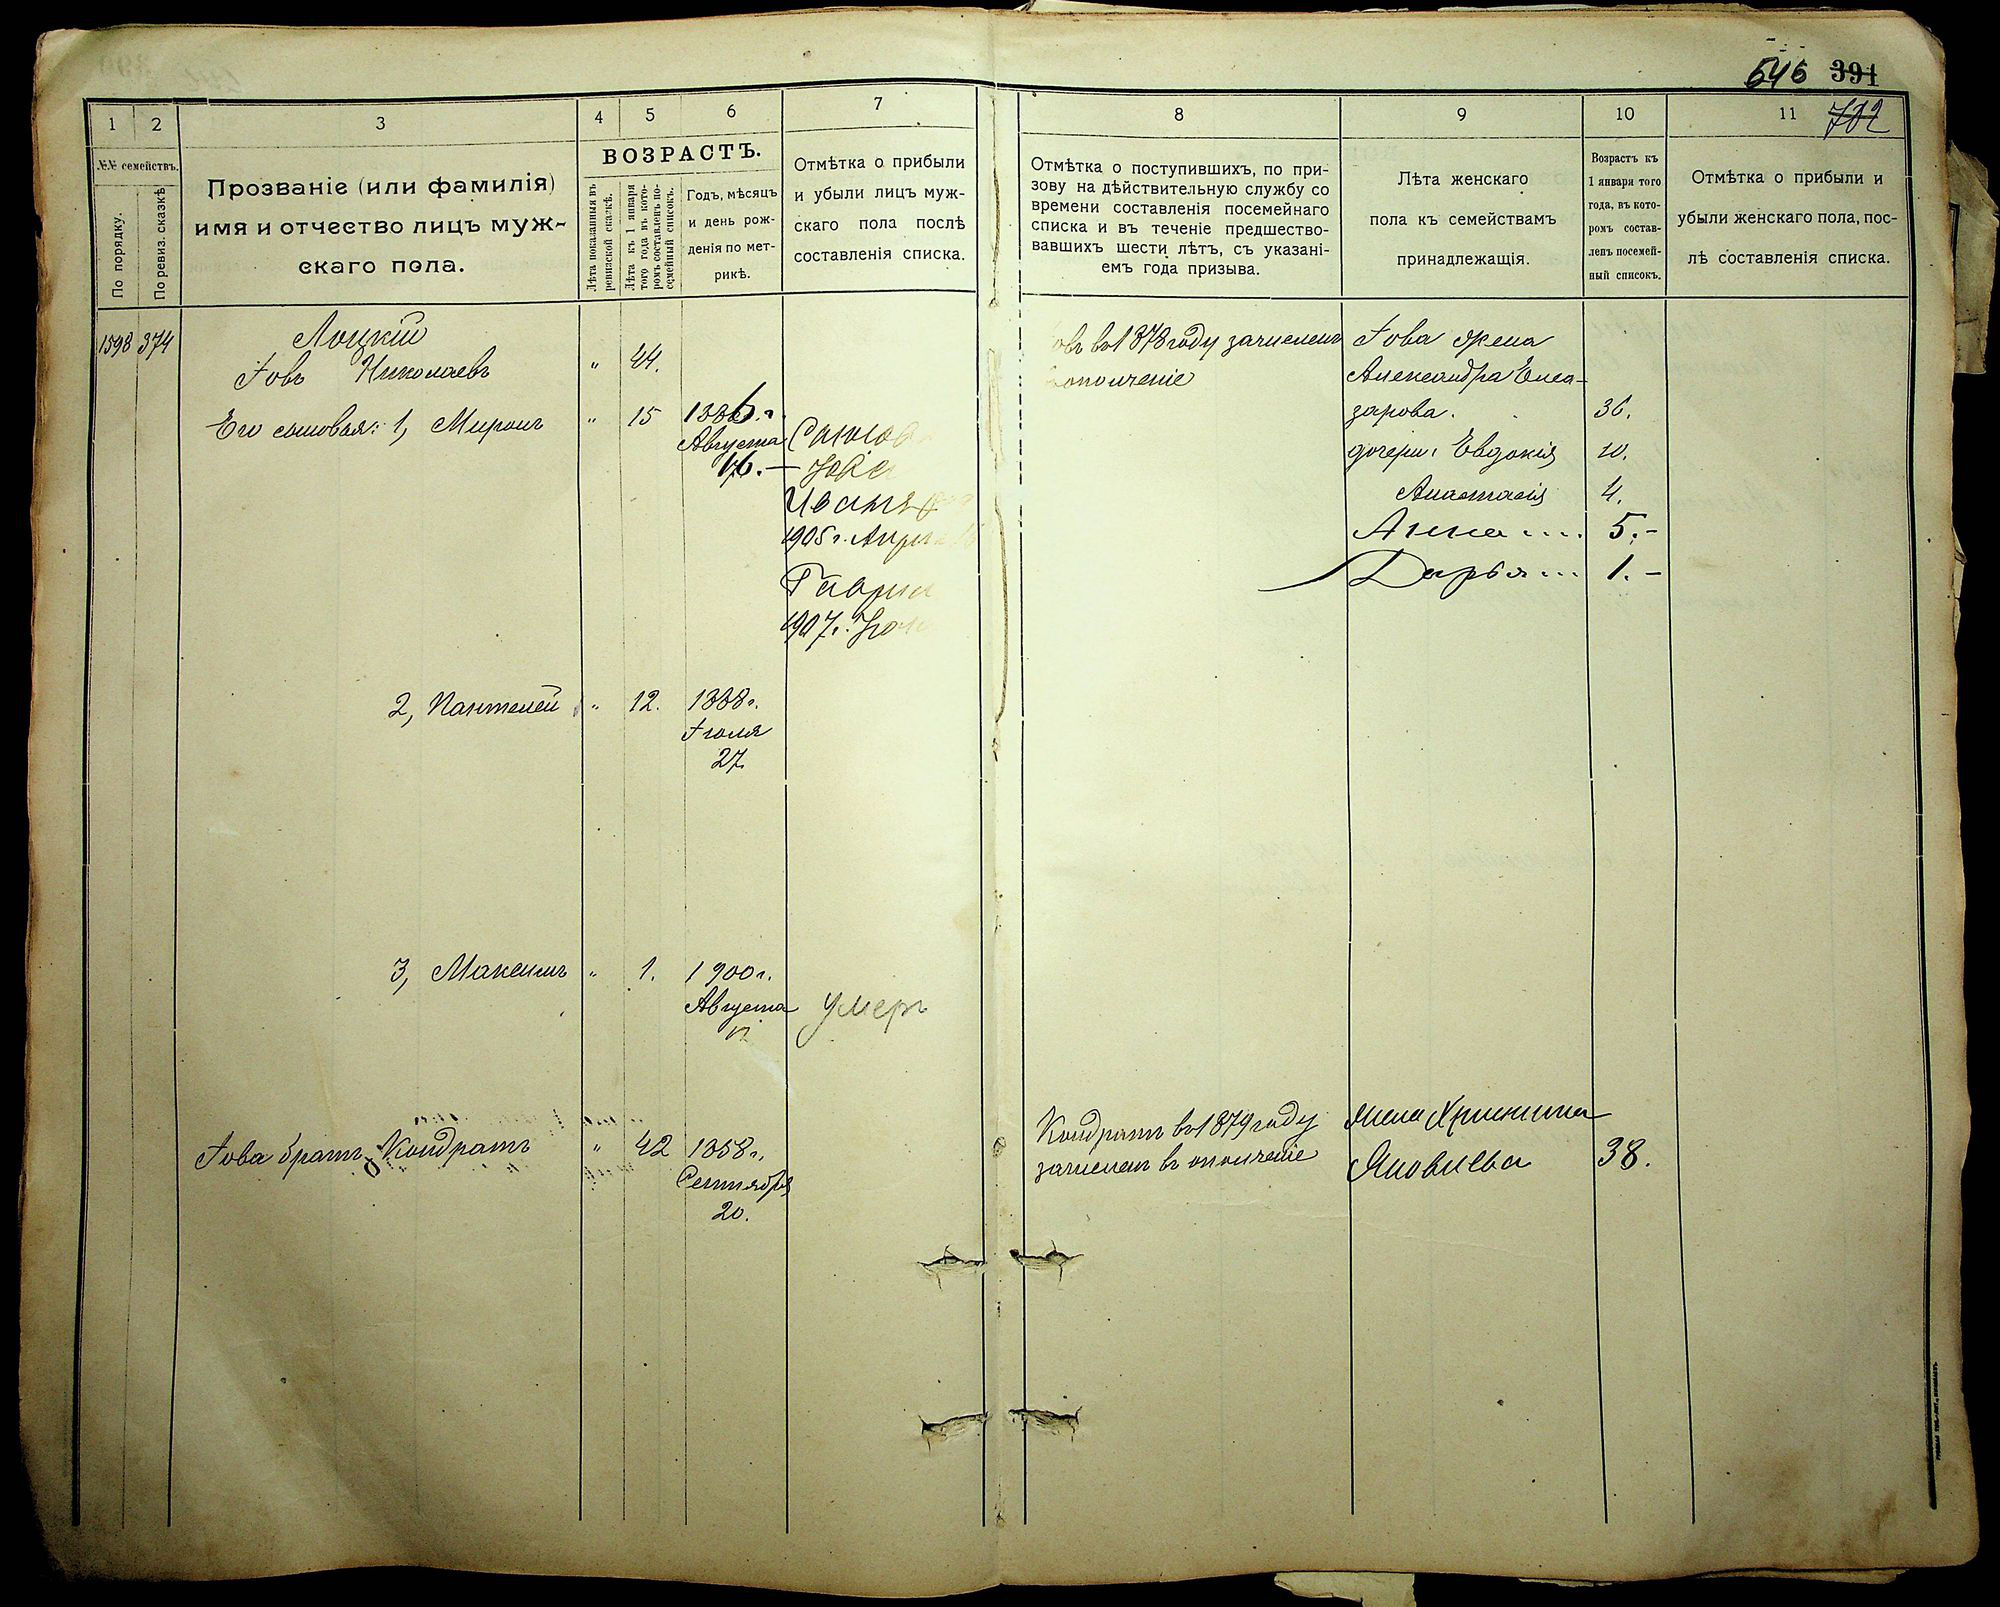 546 391
702
1
2
3
4
5
6
7
8
9
10
11
№№ семействъ.
По порядку.
По ревиз. сказкѣ
Прозваніе (или фамилія)
имя и отчество лицъ муж-
скаго пола.
ВОЗРАСТЪ.
Лѣта показанныя въ
ревизской сказкѣ.
Лѣта къ 1 января
того года въ кото-
ромъ составленъ по-
семейный списокъ.
Годъ, мѣсяцъ
и день рож-
денія по мет-
рикѣ.
Отмѣтка о прибыли
и убыли лицъ муж-
скаго пола послѣ
составленія списка.
Отмѣтка о поступившихъ, по при-
зову на дѣйствительную службу со
времени составленія посемейнаго
списка и въ теченіе предшество-
вавшихъ шести лѣтъ, съ указані-
емъ года призыва.
Лѣта женскаго
пола къ семействамъ
принадлежащія.
Возрастъ къ
1 января того
года, въ кото-
ромъ состав-
ленъ посемей-
ный списокъ.
Отмѣтка о прибыли и
убыли женскаго пола, пос-
лѣ составленія списка.
1598 374
Лоцкій
Іовъ Николаевъ " 44.
Его сыновья: 1, Миронъ " 15 1886 г.
Августа
16. —
1905 г.
1907 г.
2, Пантелей " 12. 1888 г.
Іюля
27.
3, Максимъ " 1. 1900 г.
Августа
умеръ
Іова братъ Кондратъ " 42 1858 г.
Сентября
20.
въ 1878 году зачисленъ
ополченіе
Іова жена
Александра Елеа-
зарова. 36.
дочери: Евдокія 10.
Анастасія 4.
Анна ... 5. -
Дарья ... 1. -
Кондратъ въ 1879 году
зачисленъ въ ополченіе
жена Христина
Яковлева 38.